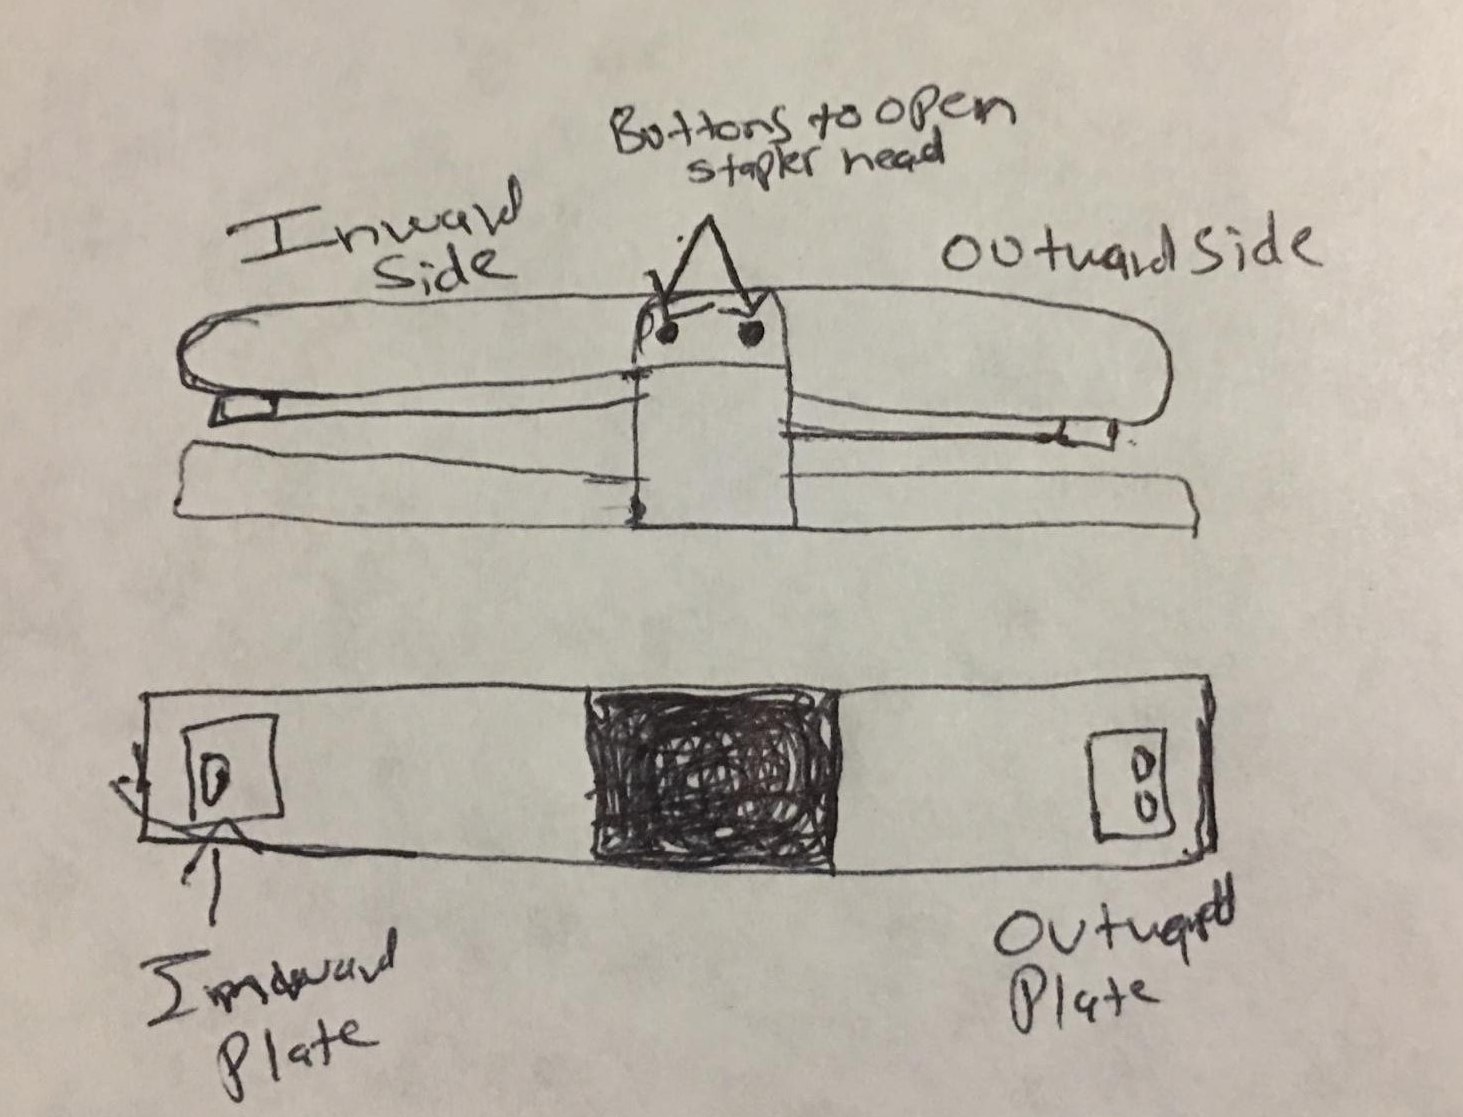 Buttons to open
stapler head
Inward
Side
Outward Side
Inward
Plate
Outward
Plate